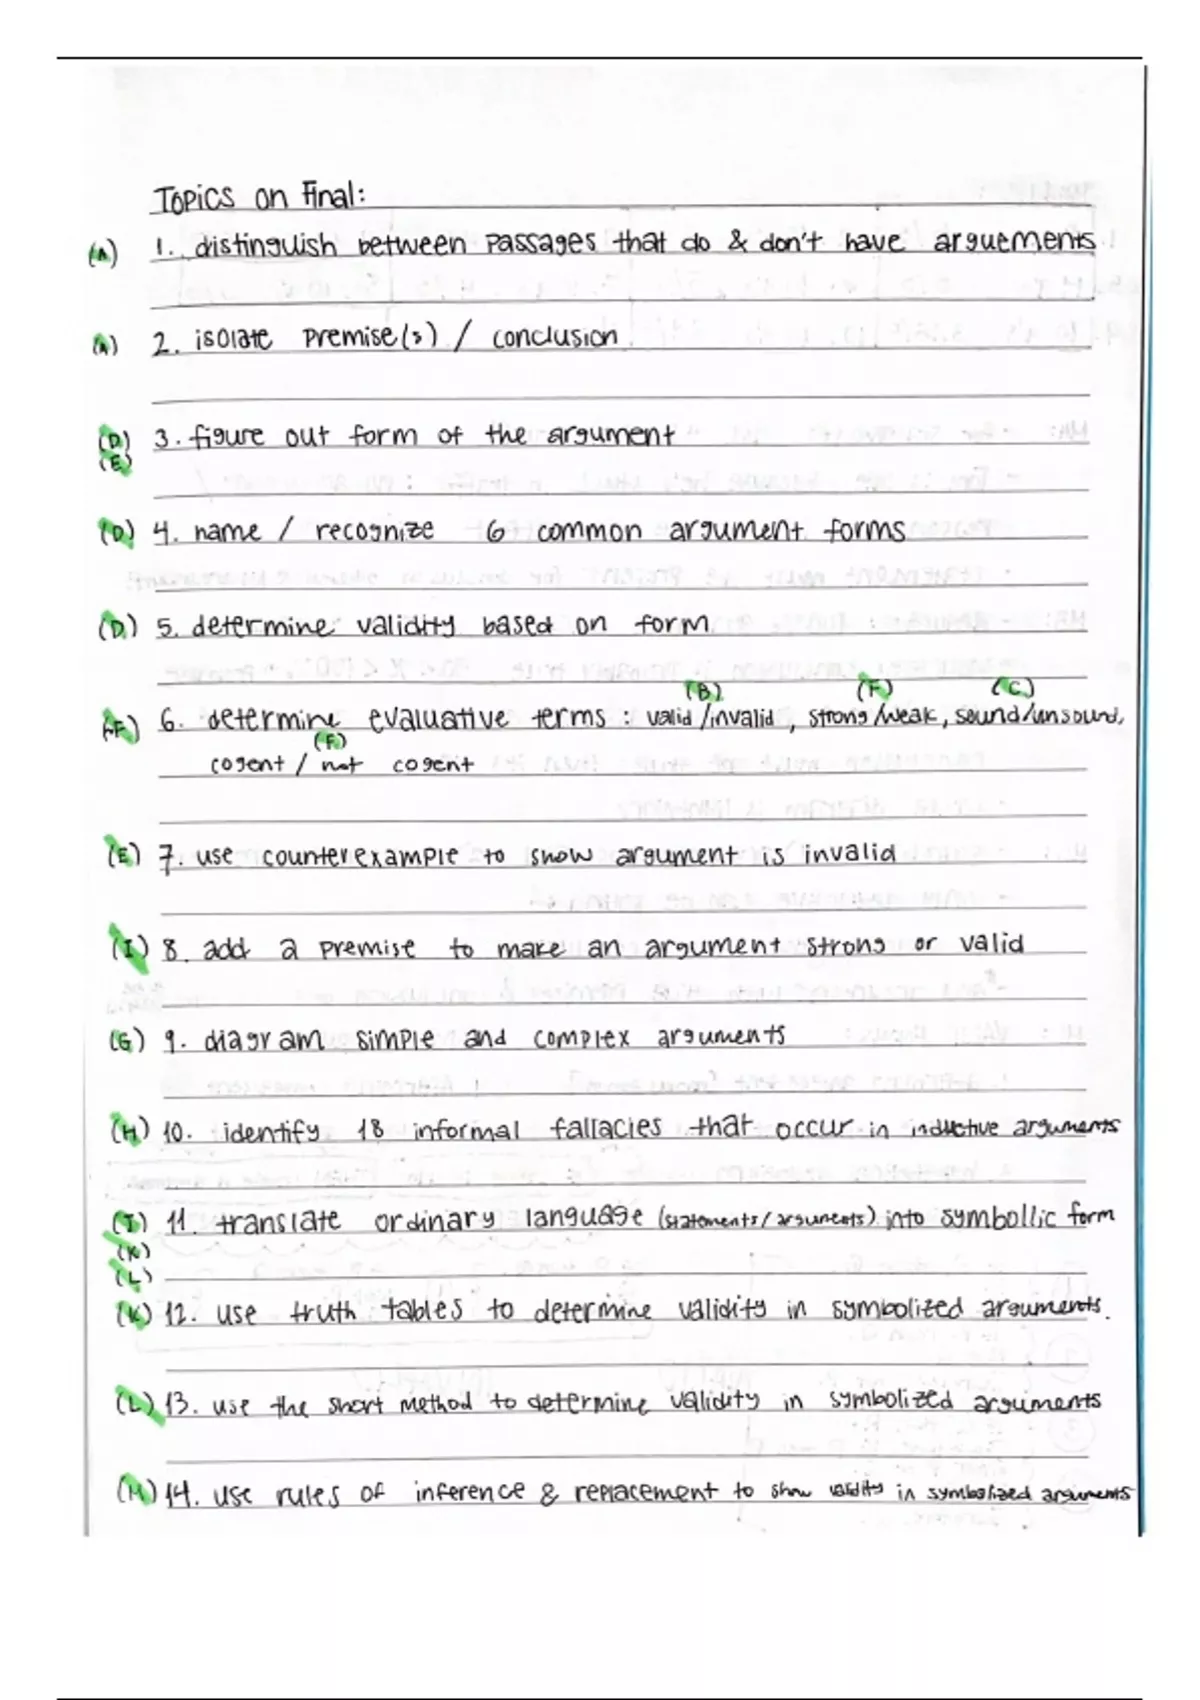 Topics on Final:
(A) 1. distinguish between passages that do & don't have arguements
(A) 2. isolate premise(s) / conclusion
(D) 3. figure out form of the argument
(E)
(D) 4. name / recognize 6 common argument forms
(D) 5. determine validity based on form
(B) (F) (C)
(F) 6. determine evaluative terms : valid/invalid, strong/weak, sound/unsound,
(F)
cogent / not cogent
(E) 7. use counterexample to show argument is invalid
(I) 8. add a premise to make an argument strong or valid
(G) 9. diagram simple and complex arguments
(H) 10. identify 18 informal fallacies that occur in inductive arguments
11. translate ordinary language (statements/arguments) into symbollic form
(K)
(L)
(K) 12. use truth tables to determine validity in symbolized arguments.
(L) 13. use the short method to determine validity in symbolized arguments
(M) 14. use rules of inference & replacement to show validity in symbolized arguments